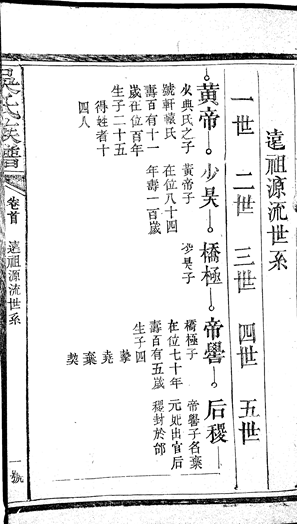 遠祖源流世系
一世 二世 三世 四世 五世
黃帝 少昊 橋極 帝嚳 后稷
火典氏之子
號軒轅氏
壽百有十一
歲在位百年
生子二十五
得姓者十
四人
黃帝子
在位八十四
年壽一百歲
少昊子
橋極子
在位七十年
壽百有五歲
生子四
摯
堯
棄
契
帝嚳子名棄
元妃出官后
稷封於邰
吳氏族譜
卷首
遠祖源流世系
一號